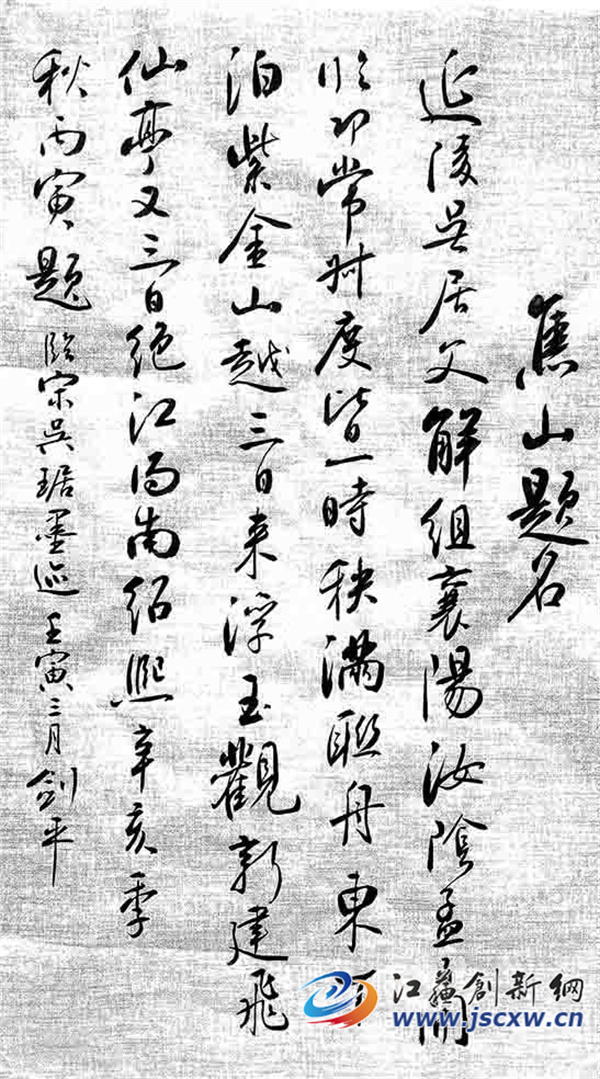 焦山题名
延陵吴居父解组襄陽汝陰孟開
临邛常叔度皆一時秩满聯舟東下
泊紫金山越三日来浮玉觀新建飛
仙亭又三日绝江而南绍熙辛亥季
秋丙寅题 临宋吴琚墨迹 壬寅三月剑平
江蘇創新網
www.jscxw.cn